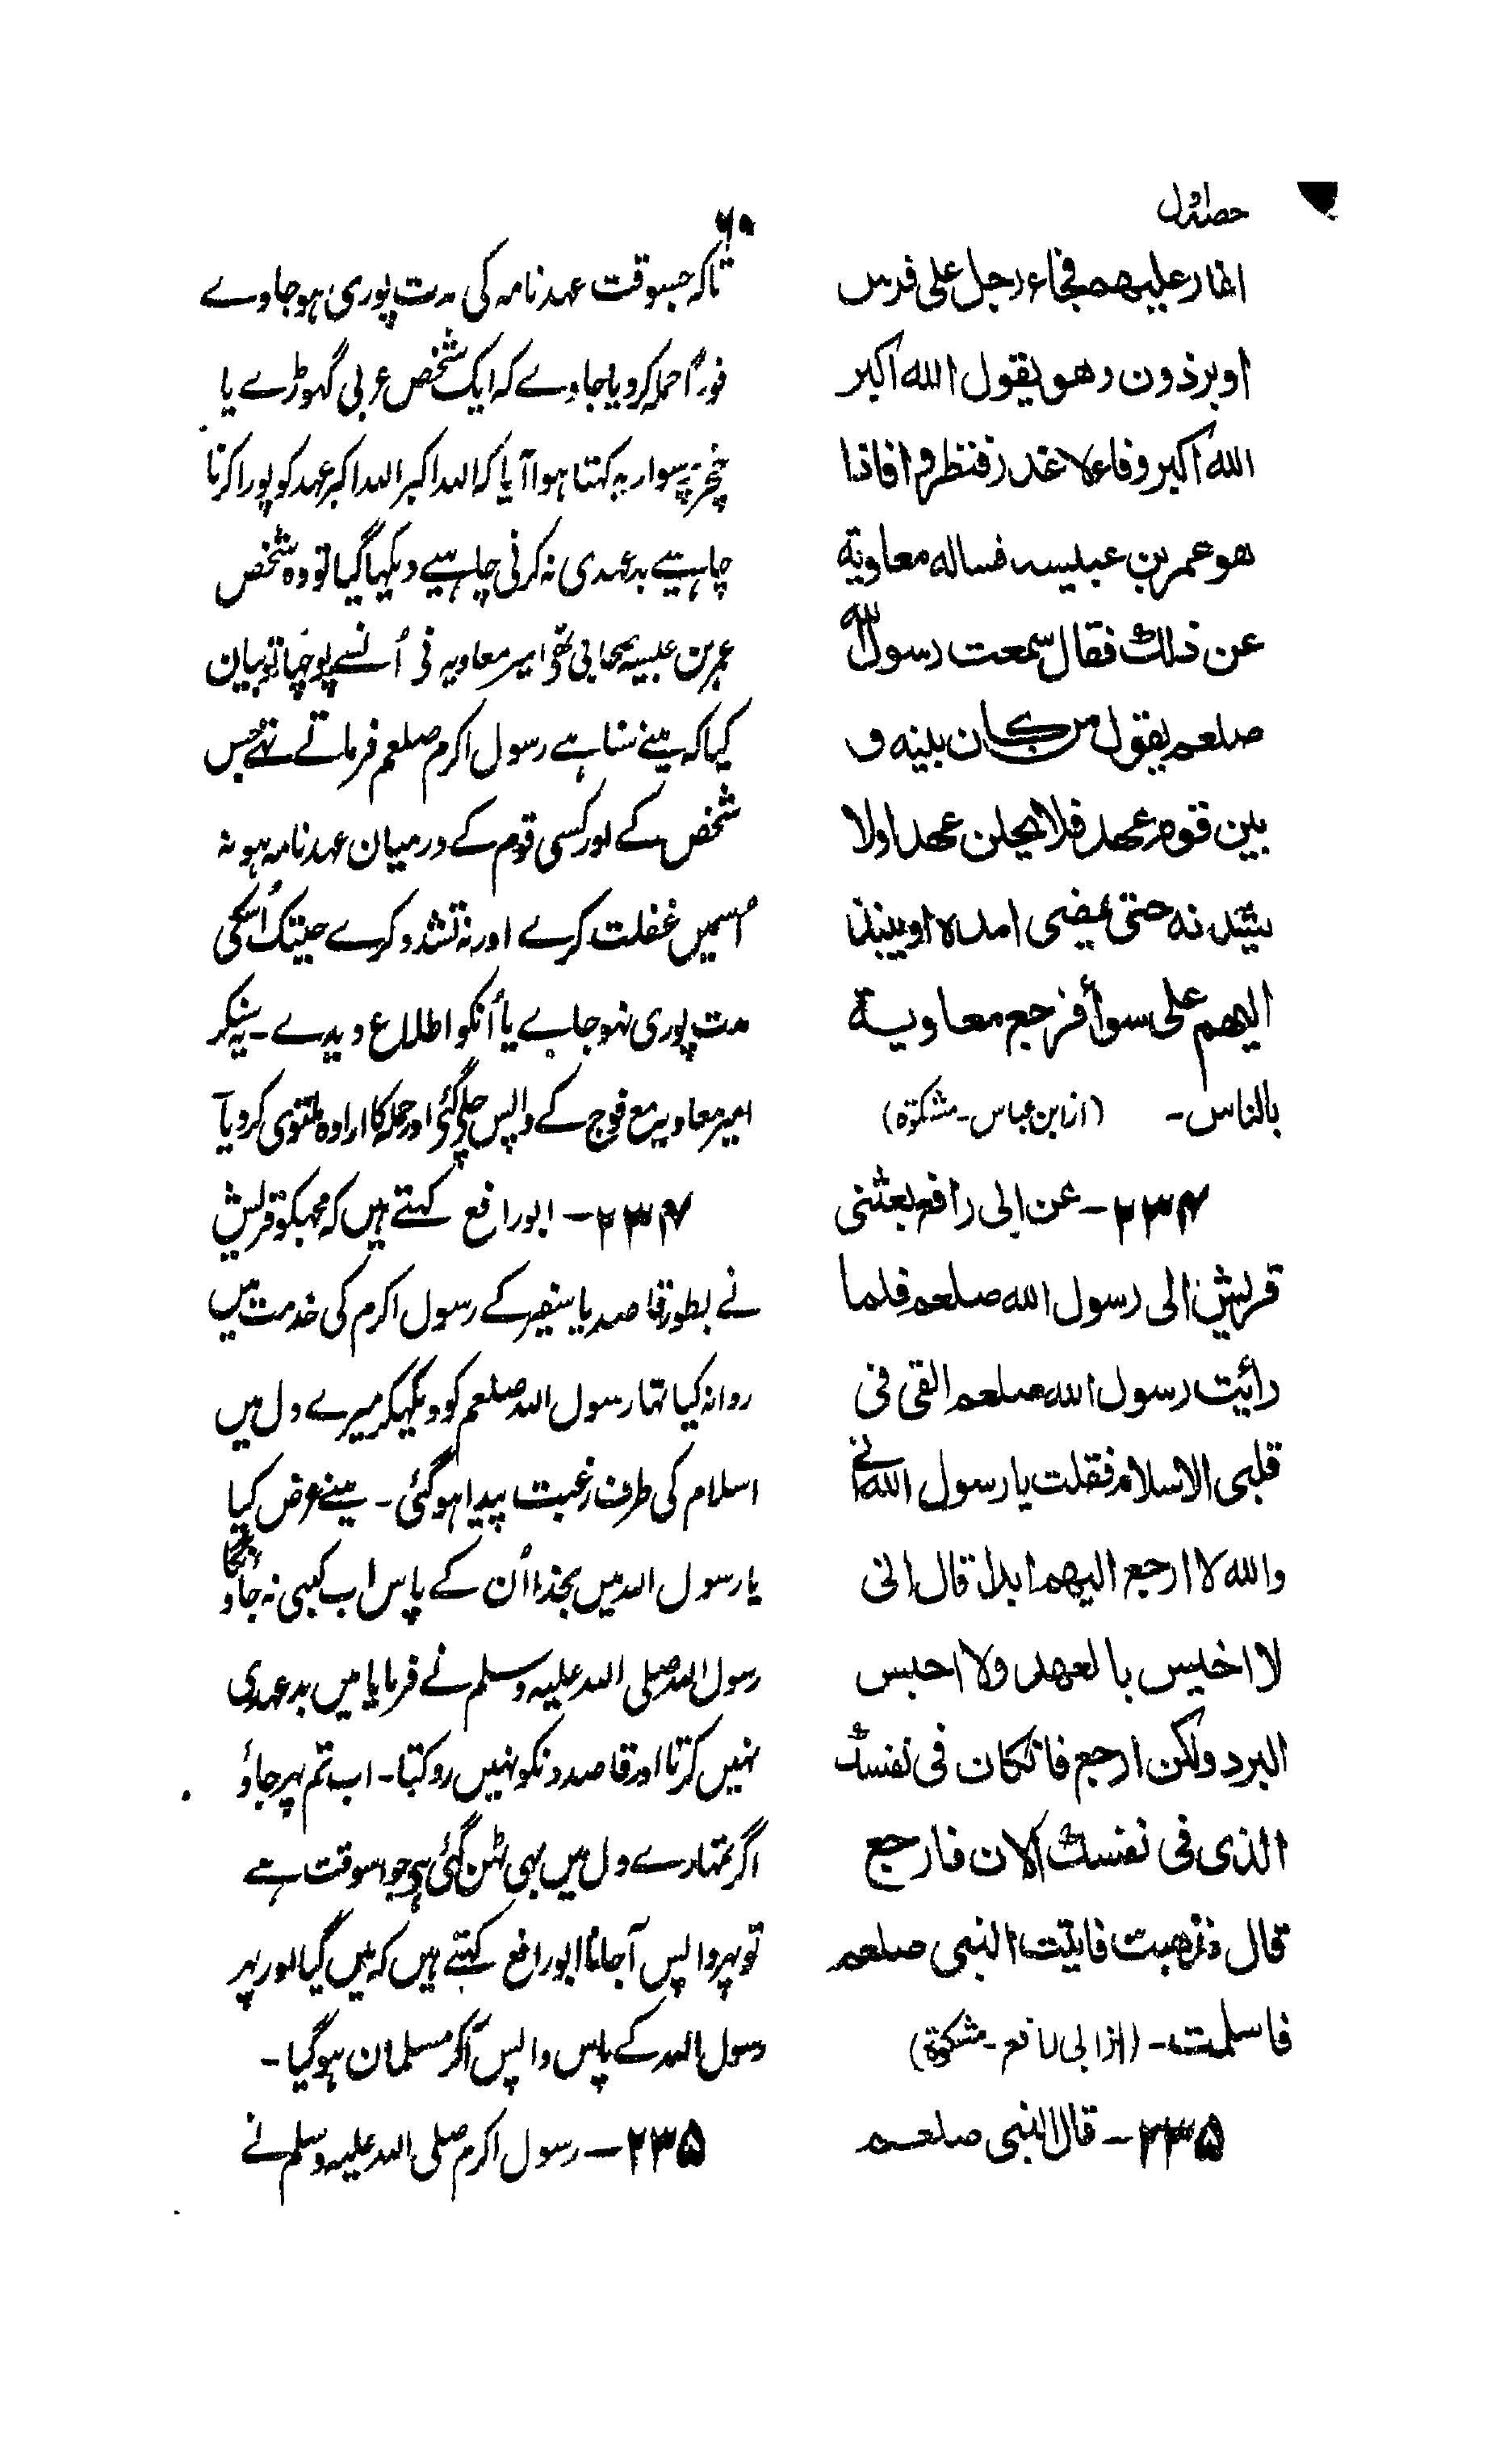 حصہ اول
۶۰
اغار علیہم فجاء رجل علی فرس
او برذون وھو یقول اللہ اکبر
اللہ اکبر وفاء لا غدر فنظروا فاذا
ھو عمر بن عبیسہ فسالہ معاویۃ
عن ذلک فقال سمعت رسول اللہ
صلعم یقول من کان بینہ و
بین قوم عھد فلا یحلن عھدا ولا
یشدنہ حتی یمضی امدہ او ینبذ
الیھم علی سوأ فرجع معاویۃ
بالناس۔ (از ابن عباس۔ مشکوۃ)
۲۳۴۔ عن ابی رافع بعثنی
قریش الی رسول اللہ صلعم فلما
رائیت رسول اللہ صلعم القی فی
قلبی الاسلام فقلت یا رسول اللہ انی
واللہ لا ارجع الیھم ابدا قال انی
لا اخیس بالعھد ولا احبس
البرد ولکن ارجع فان کان فی نفسک
الذی فی نفسک الان فارجع
قال فذھبت فاتیت النبی صلعم
فاسلمت۔ (از ابی رافع۔ مشکوۃ)
۲۳۵۔ قال النبی صلعم
تاکہ جسوقت عہد نامہ کی مدت پوری ہو جاوے
فوراً حملہ کر دیا جاوے کہ ایک شخص عربی گہوڑے یا
خچر پر سوار یہ کہتا ہوا آیا کہ اللہ اکبر اللہ اکبر عہد کو پورا کرنا
چاہیے بد عہدی نہ کرنی چاہیے دیکہا گیا تو وہ شخص
عمر بن عبسیہ صحابی تھے امیر معاویہ نے اُنسے پوچہا تو بیان
کیا کہ مینے سنا ہے رسول اکرم صلعم فرماتے تہے جس
شخص کے اور کسی قوم کے درمیان عہد نامہ ہو نہ
اُسمیں غفلت کرے اور نہ تشدد کرے جبتک اُسکی
مدت پوری نہو جاے یا اُنکو اطلاع دیدے۔ یہ سنکر
امیر معاویہ مع فوج کے واپس چلے گئے اور حملہ کا ارادہ ملتوی کر دیا
۲۳۴۔ ابو رافع کہتے ہیں کہ مجہکو قریش
نے بطور قاصد یا سفیر کے رسول اکرم کی خدمت میں
روانہ کیا تہا رسول اللہ صلعم کو دیکہکر میرے دل میں
اسلام کی طرف رغبت پیدا ہو گئی۔ مینے عرض کیا
یا رسول اللہ میں بخدا اُن کے پاس اب کبہی نہ جاؤنگا
رسول اللہ صلی اللہ علیہ وسلم نے فرمایا میں بد عہدی
نہیں کرتا اور قاصدونکو نہیں روکتا۔ اب تم پہر جاؤ
اگر تمہارے دل میں یہی ٹہن گئی ہے جو اسوقت ہے
تو پہر واپس آجانا ابو رافع کہتے ہیں کہ میں گیا اور پہر
رسول اللہ کے پاس واپس آکر مسلمان ہو گیا۔
۲۳۵۔ رسول اکرم صلی اللہ علیہ وسلم نے